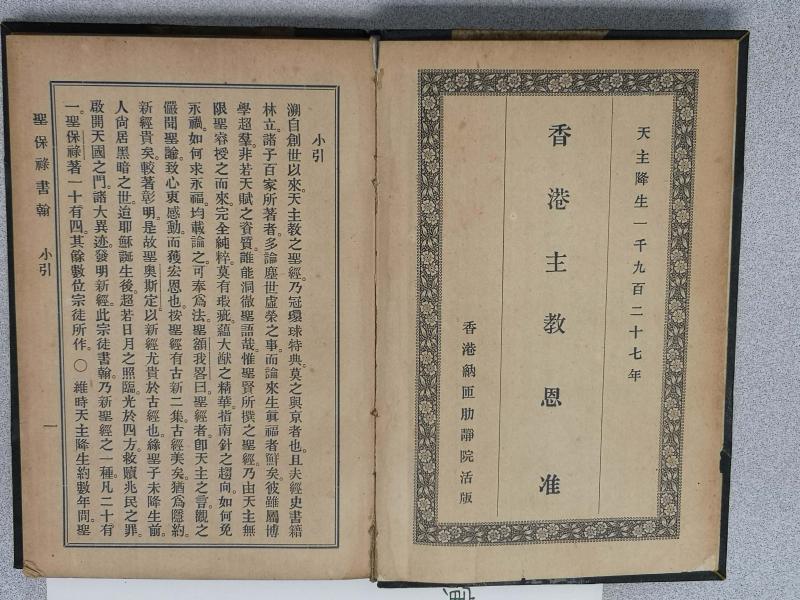 天主降生一千九百二十七年
香港主教恩准
香港納匝肋靜院活版
小引
溯自創世以來。天主教之聖經。乃冠環球特典。莫之與京者也。且夫經史書籍
林立。諸子百家所著者。多論塵世虛榮之事。而論來生眞福者鮮矣。彼雖屬博
學超羣。非若天賦之資質。誰能洞徹聖語哉。惟聖賢所撰之聖經。乃由天主無
限聖睿授之而來。完全純粹。莫有瑕疵。蘊大猷之精華。指南針之趨向。如何免
永禍。如何求永福。均載論之。可奉爲法。聖額我畧曰。聖經者。卽天主之言。觀之
儼聞聖諭。致心衷感動。而獲宏恩也。按聖經有古新二集。古經美矣。猶爲隱約。
新經貴矣。較著彰明。是故聖奥斯定。以新經尤貴於古經也。緣聖子未降生前。
人尙居黑暗之世。迨耶穌誕生後。超若日月之照臨。光於四方。救贖兆民之罪。
啟開天國之門。諸大異迹。發明新經。此宗徒書翰。乃新聖經之一種。凡二十有
一。聖保祿著一十有四。其餘數位宗徒所作。〇維時天主降生約數年間。聖
聖保祿書翰 小引 一